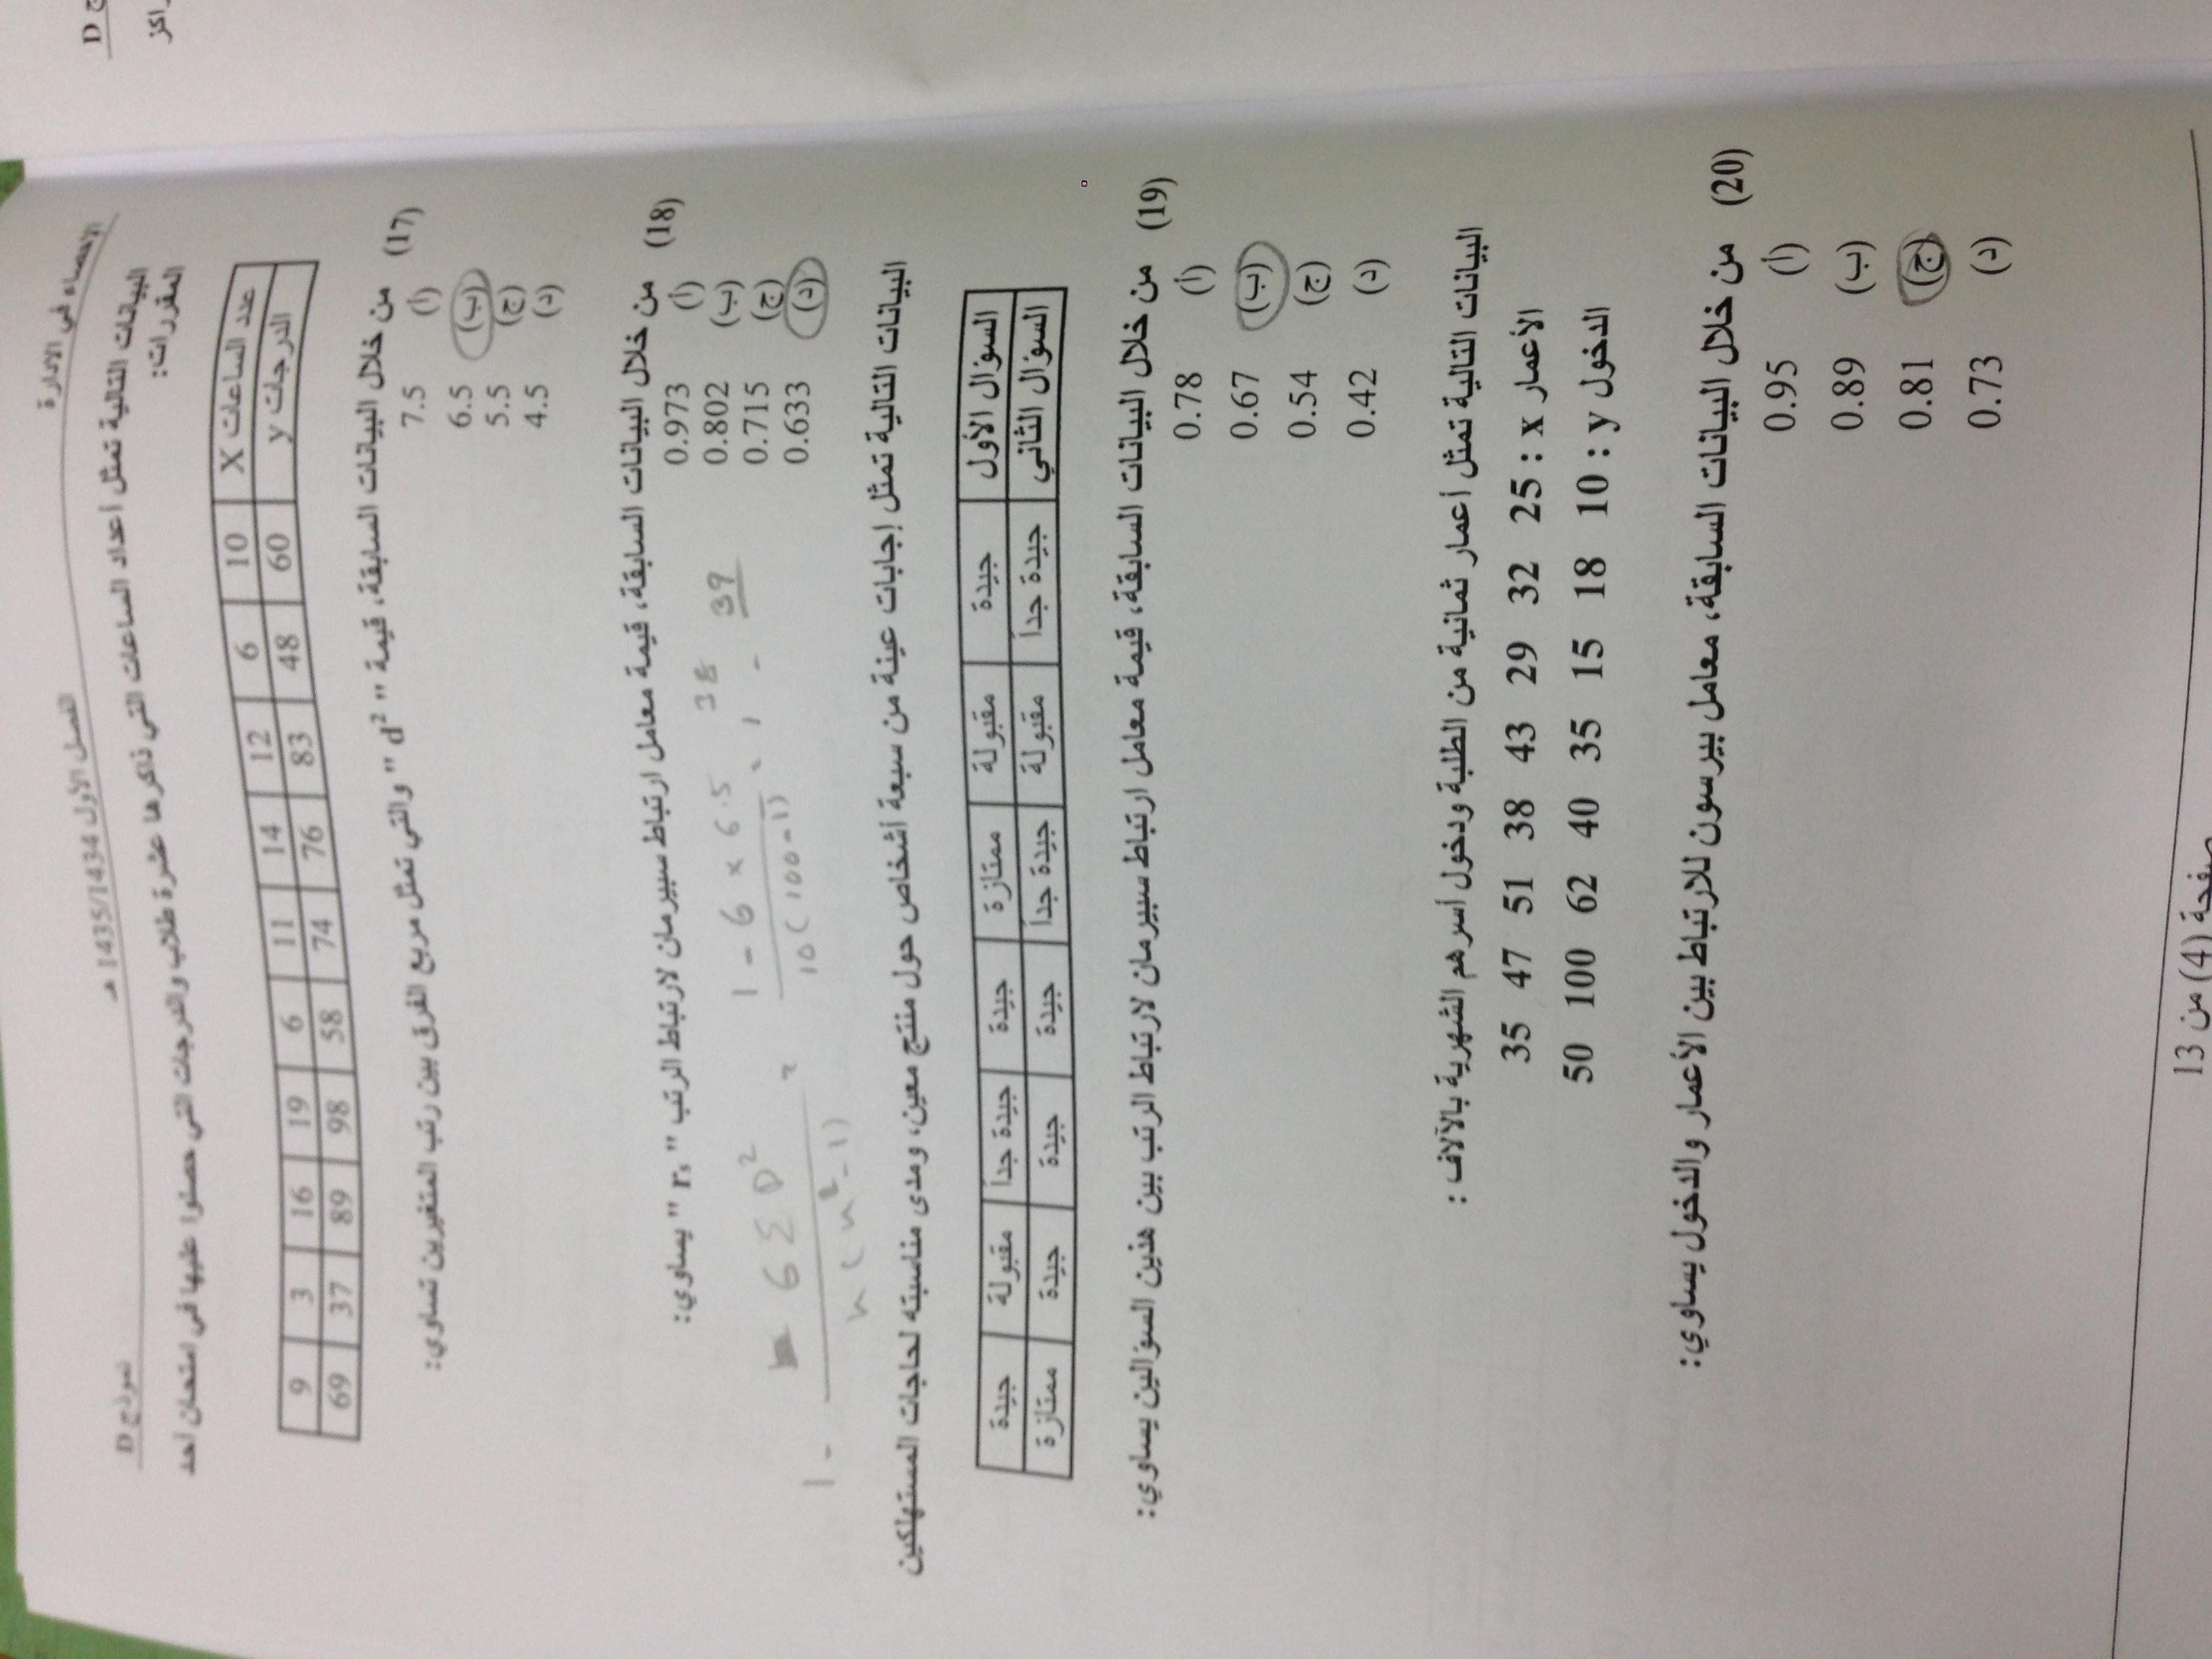 الإحصاء في الإدارة الفصل الأول 1435/1434 هـ نموذج D
البيانات التالية تمثل أعداد الساعات التي ذاكرها عشرة طلاب والدرجات التي حصلوا عليها في امتحان أحد
المقررات:
عدد الساعات X 10 6 12 14 11 6 19 16 3 9
الدرجات y 60 48 83 76 74 58 98 89 37 69
(17) من خلال البيانات السابقة، قيمة " d² " والتي تمثل مربع الفرق بين رتب المتغيرين تساوي:
(أ) 7.5
(ب) 6.5
(ج) 5.5
(د) 4.5
(18) من خلال البيانات السابقة، قيمة معامل ارتباط سبيرمان لارتباط الرتب " rₛ " يساوي:
(أ) 0.973
(ب) 0.802
(ج) 0.715
(د) 0.633
1 - 6 × 6.5
10(100-1)
39
6 Σ D²
1 -
n(n²-1)
البيانات التالية تمثل إجابات عينة من سبعة أشخاص حول منتج معين، ومدى مناسبته لحاجات المستهلكين
السؤال الأول جيدة مقبولة ممتازة جيدة جيدة جداً مقبولة جيدة
السؤال الثاني جيدة جداً مقبولة جيدة جداً جيدة جيدة جيدة ممتازة
(19) من خلال البيانات السابقة، قيمة معامل ارتباط سبيرمان لارتباط الرتب بين هذين السؤالين يساوي:
(أ) 0.78
(ب) 0.67
(ج) 0.54
(د) 0.42
البيانات التالية تمثل أعمار ثمانية من الطلبة ودخول أسرهم الشهرية بالآلاف :
الأعمار x : 25 32 29 43 38 51 47 35
الدخول y : 10 18 15 35 40 62 100 50
(20) من خلال البيانات السابقة، معامل بيرسون للارتباط بين الأعمار والدخول يساوي:
(أ) 0.95
(ب) 0.89
(ج) 0.81
(د) 0.73
صفحة (4) من 13
D